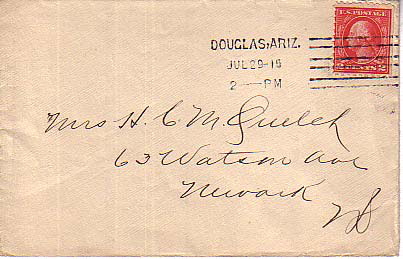 U.S. POSTAGE
DOUGLAS, ARIZ.
JUL 29-15
2 — PM
2 CENTS 2
Mrs H. C. M. Quelch
63 Watson Ave
Newark
NJ